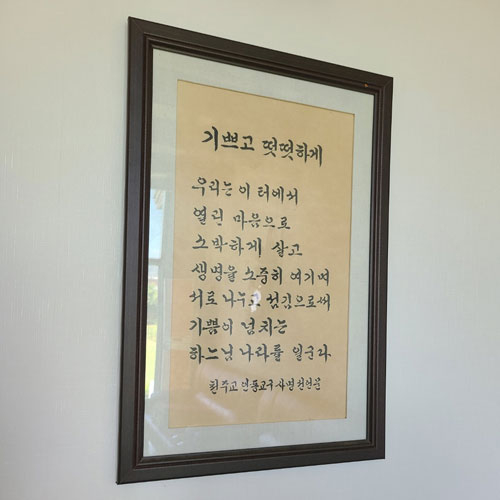 기쁘고 떳떳하게
우리는 이 터에서
열린 마음으로
소박하게 살고
생명을 소중히 여기며
서로 나누고 섬김으로써
기쁨이 넘치는
하느님 나라를 일군다
천주교 안동교구 사명선언문